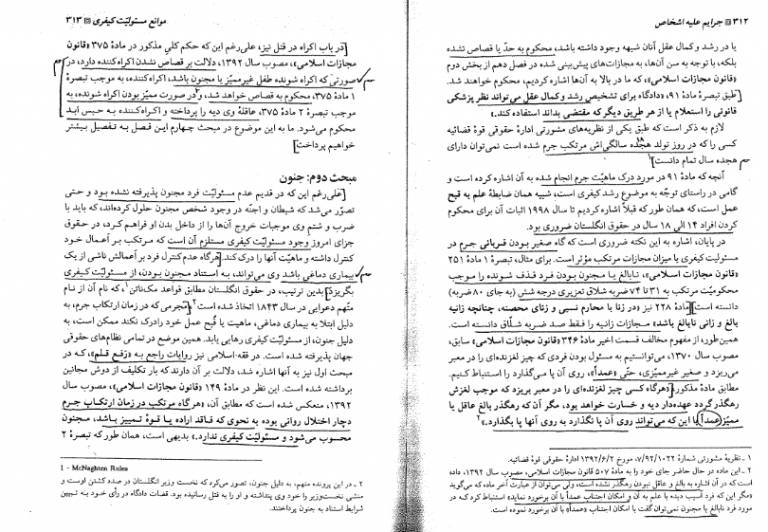 ۳۱۲ ▪ جرایم علیه اشخاص
یا در رشد و کمال عقل آنان شبهه وجود داشته باشد، محکوم به حدّ یا قصاص نشده
بلکه، با توجه به سن آن‌ها، به مجازات‌های پیش‌بینی شده در فصل دهم از بخش دوم
«قانون مجازات اسلامی»، که ما در بالا به آن‌ها اشاره کردیم، محکوم خواهند شد.
طبق تبصرهٔ مادهٔ ۹۱، «دادگاه برای تشخیص رشد و کمال عقل می‌تواند نظر پزشکی
قانونی را استعلام یا از هر طریق دیگر که مقتضی بداند استفاده کند.»
لازم به ذکر است که طبق یکی از نظریه‌های مشورتی ادارهٔ حقوقی قوهٔ قضائیه
کسی را که در روز تولد هجده سالگی‌اش مرتکب جرم شده است نمی‌توان دارای
هجده سال تمام دانست.۱
آنچه که مادهٔ ۹۱ در مورد درک ماهیت جرم انجام شده به آن اشاره کرده است و
گامی در راستای توجّه به موضوع رشد کیفری است، شبیه همان ضابطهٔ علم به قبح
عمل است، که همان طور که قبلاً اشاره کردیم تا سال ۱۹۹۸ اثبات آن برای محکوم
کردن افراد ۱۴ الی ۱۸ سال در حقوق انگلستان ضروری بود.
در پایان، اشاره به این نکته ضروری است که گاه صغیر بودن قربانی جرم در
مسئولیت کیفری یا میزان مجازات مرتکب مؤثر است. برای مثال، تبصرهٔ ۱ مادهٔ ۲۵۱
«قانون مجازات اسلامی»، نابالغ یا مجنون بودن فرد قذف شونده را موجب
محکومیّت مرتکب به ۳۱ تا ۷۴ ضربه شلاق تعزیری درجه شش (به جای ۸۰ ضربه)
دانسته است. مادهٔ ۲۲۸ نیز «در زنا با محارم نسبی و زنای محصنه، چنانچه زانیه
بالغ و زانی نابالغ باشد» مجازات زانیه را فقط صد ضربه شلّاق دانسته است.
همین‌طور، از مفهوم مخالف قسمت اخیر مادهٔ ۳۴۶ «قانون مجازات اسلامی» سابق،
مصوب سال ۱۳۷۰، می‌توانستیم به مسئول بودن فردی که چیز لغزنده‌ای را در معبر
می‌ریزد و صغیر غیرممیّزی، حتّی «عمداً»، روی آن پا می‌گذارد را استنباط کنیم.
مطابق مادهٔ مذکور، «هرگاه کسی چیز لغزنده‌ای را در معبر بریزد که موجب لغزش
رهگذر گردد عهده‌دار دیه و خسارت خواهد بود، مگر آن که رهگذر بالغ عاقل یا
ممیّز عمداً با این که می‌تواند روی آن پا نگذارد به روی آنها پا بگذارد.»۲
۱ ـ نظریهٔ مشورتی شمارهٔ ۷/۹۲/۱۰۲۲، مورخ ۱۳۹۲/۶/۲ ادارهٔ حقوقی قوهٔ قضائیه.
۲ ـ این ماده در حال حاضر جای خود را به مادهٔ ۵۰۷ قانون مجازات اسلامی، مصوب سال ۱۳۹۲، داده
است که در آن اشاره به بالغ و عاقل نبودن رهگذر نشده است، ولی می‌توان از عبارت آخر ماده که می‌گوید
«مگر این که فرد آسیب دیده با علم به آن و امکان اجتناب عمداً با آن برخورد نماید» استنباط کرد که در
مورد فرد نابالغ یا مجنون نمی‌توان گفت با امکان اجتناب عمداً با آن برخورد نموده است.
موانع مسئولیّت کیفری ▪ ۳۱۳
در باب اکراه در قتل نیز، علی‌رغم این که حکم کلی مذکور در مادهٔ ۳۷۵ «قانون
مجازات اسلامی»، مصوب سال ۱۳۹۲، دلالت بر قصاص نشدن اکراه‌کننده دارد، در
صورتی که اکراه شونده طفل غیرممیّز یا مجنون باشد، اکراه‌کننده، به موجب تبصرهٔ
۱ مادهٔ ۳۷۵، محکوم به قصاص خواهد شد، و در صورت ممیّز بودن اکراه شونده، به
موجب تبصرهٔ ۲ مادهٔ ۳۷۵، عاقلهٔ وی دیه را پرداخته و اکراه‌کننده به حبس ابد
محکوم می‌شود. ما به این موضوع در مبحث چهارم این فصل به تفصیل بیشتر
خواهیم پرداخت.
مبحث دوم: جنون
علی‌رغم این که در قدیم عدم مسئولیّت فرد مجنون پذیرفته نشده بود و حتی
تصوّر می‌شد که شیطان و اجنّه در وجود شخص مجنون حلول کرده‌اند، که باید با
ضرب و شتم وی موجبات خروج آن‌ها را از داخل بدن او فراهم کرد، در حقوق
جزای امروز وجود مسئولیّت کیفری مستلزم آن است که مرتکب بر اعمال خود
کنترل داشته و ماهیت آنها را درک کند. هرگاه عدم کنترل فرد بر اعمالش ناشی از یک
بیماری دماغی باشد وی می‌تواند، به استناد مجنون بودن، از مسئولیّت کیفری
بگریزد. بدین ترتیب، در حقوق انگلستان مطابق قواعد مک‌ناتن۱، که نام آن از نام
متّهم دعوایی در سال ۱۸۴۳ اتخاذ شده است۲، مجرمی که در زمان ارتکاب جرم، به
دلیل ابتلا به بیماری دماغی، ماهیت یا قُبح عمل خود را درک نکند ممکن است، به
دلیل جنون، از مسئولیّت کیفری رهایی یابد. همین موضع در تمامی نظام‌های حقوقی
جهان پذیرفته شده است. در فقه اسلامی نیز روایات راجع به «رفع قلم»، که در
مبحث اول نیز به آنها اشاره شد، دلالت بر آن دارند که بار تکلیف از دوش مجانین
برداشته شده است. این نظر در مادهٔ ۱۴۹ «قانون مجازات اسلامی»، مصوب سال
۱۳۹۲، منعکس شده است که مطابق آن، «هرگاه مرتکب در زمان ارتکاب جرم
دچار اختلال روانی بوده به نحوی که فاقد اراده یا قوهٔ تمییز باشد، مجنون
محسوب می‌شود و مسئولیّت کیفری ندارد.» بدیهی است، همان طور که تبصرهٔ ۲
1 - McNaghten Rules
۲ ـ در این پرونده متهم، به دلیل جنون، تصور می‌کرد که نخست وزیر انگلستان در صدد کشتن اوست و
منشی نخست‌وزیر را خود وی پنداشته و او را به قتل رسانیده بود. قضات دادگاه در رأی خود به تبیین
شرایط استناد به جنون پرداختند.